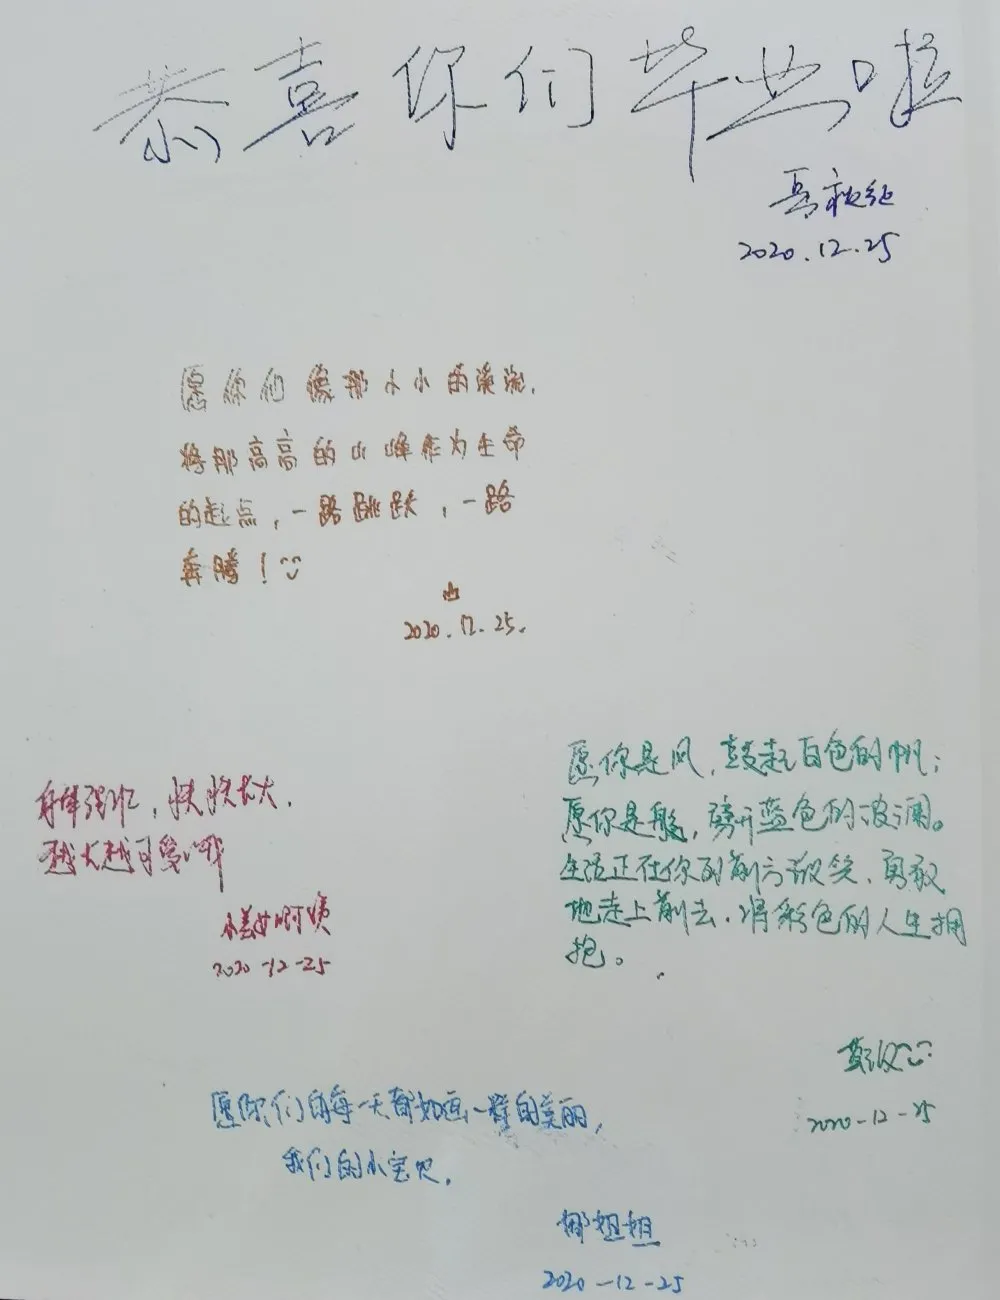 恭喜你们毕业啦
2020.12.25
愿你们像那小小的溪流,
将那高高的山峰作为生命
的起点,一路跳跃,一路
奔腾!
2020.12.25.
愿你是风,鼓起白色的帆;
愿你是船,劈开蓝色的波澜。
生活正在你到前方微笑,勇敢
地走上前去,将彩色的人生拥
抱。
2020-12-25
身体强壮,快快长大,
越长越可爱哦
小美女阿姨
2020-12-25
愿你们的每一天都如画一样的美丽,
我们的小宝贝.
娜姐姐
2020-12-25